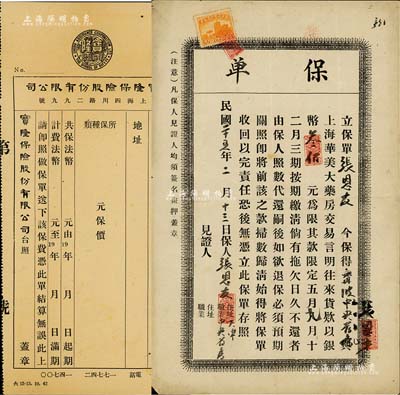 保單
立保單張恩友 今保得寧波中央
上海華美大藥房交易言明往來貨款以銀
幣叁佰 元為限其款限定五月九月十
二月三期按期繳清倘有拖欠日久不還者
由保人照數代還嗣後如欲退保必須預期
關照卽將前該之款掃數歸清始得將保單
收回以完責任恐後無憑立此保單存照
民國 年二月十三日保人張恩友
住址
職業
見證人
住址
職業
(注意)凡保人見證人均須簽名畫押蓋章
No.
寶隆保險股份有限公司
上海四川路二九九號
地址
所保種類
元保價
共保法幣 元由19 年 月 日起期
計費法幣 元至19 年 月 日滿期
請卽照做保單送下該保費憑此單結算無誤此上
寶隆保險股份有限公司台照 蓋章
電話 一七七四二 一四七〇〇
第
號